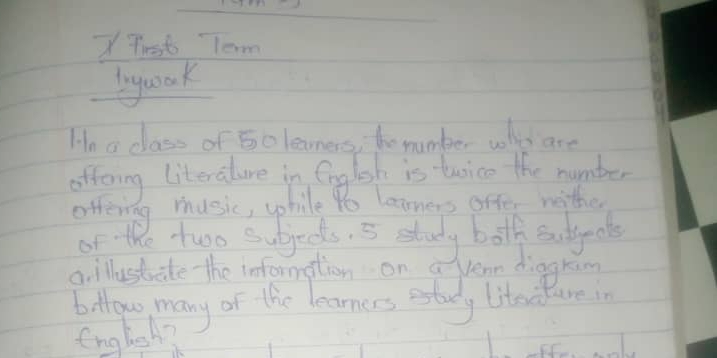 First Term
Trywork
1. In a class of 50 learners, the number who are
offering literature in English is twice the number
offering music, while 10 learners offer neither
of the two subjects. 5 study both subjects
a. illustrate the information on a Venn diagram
b. How many of the learners study literature in
English?